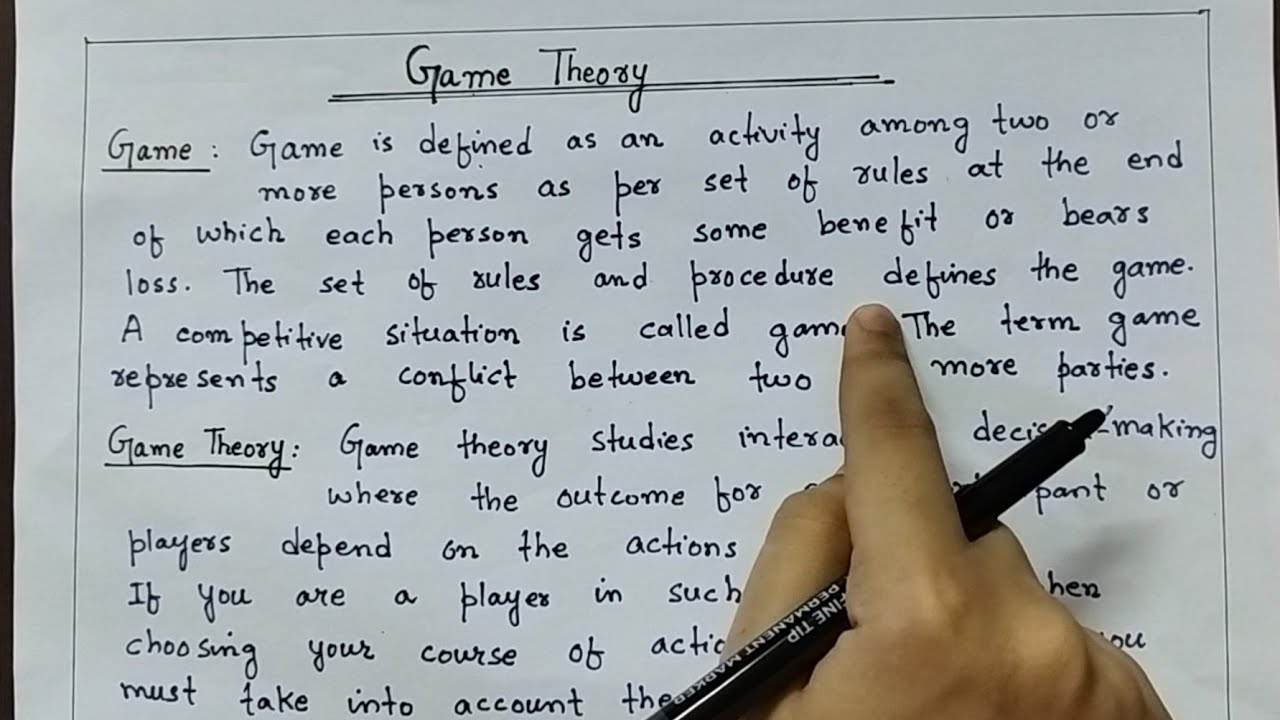 Game Theory
Game : Game is defined as an activity among two or
more persons as per set of rules at the end
of which each person gets some benefit or bears
loss. The set of rules and procedure defines the game.
A competitive situation is called The term game
represents a conflict between two more parties.
Game Theory : Game theory studies making
where the outcome for or
players depend on the actions
If you are a player in such
choosing your course of
must take into account the
FINE TIP
PERMANENT MARKER